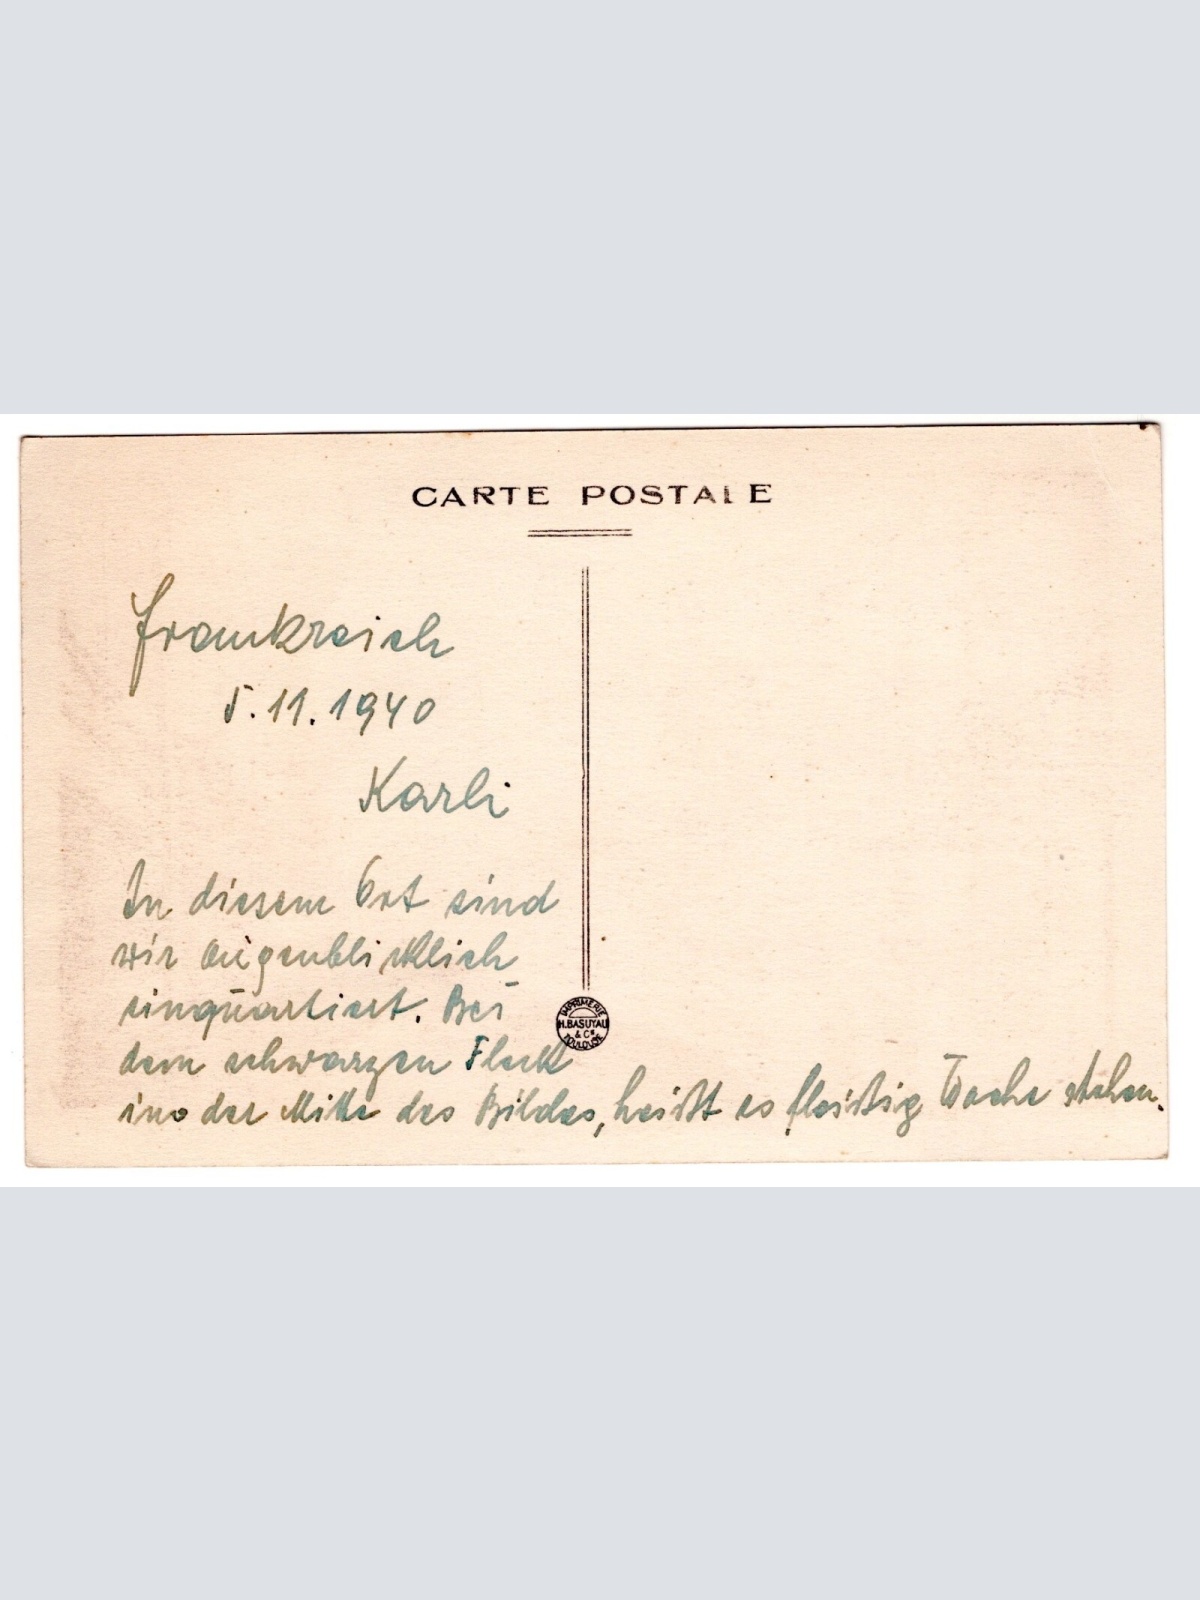 CARTE POSTALE
Frankreich
5.11.1940
Karli
In diesem Ort sind
wir augenblicklich
einquartiert. Bei
dem schwarzen Fleck
in der Mitte des Bildes, heißt es fleißig Wache stehen.
IMPRIMERIE
H.BASUYAU
& Cie
TOULOUSE